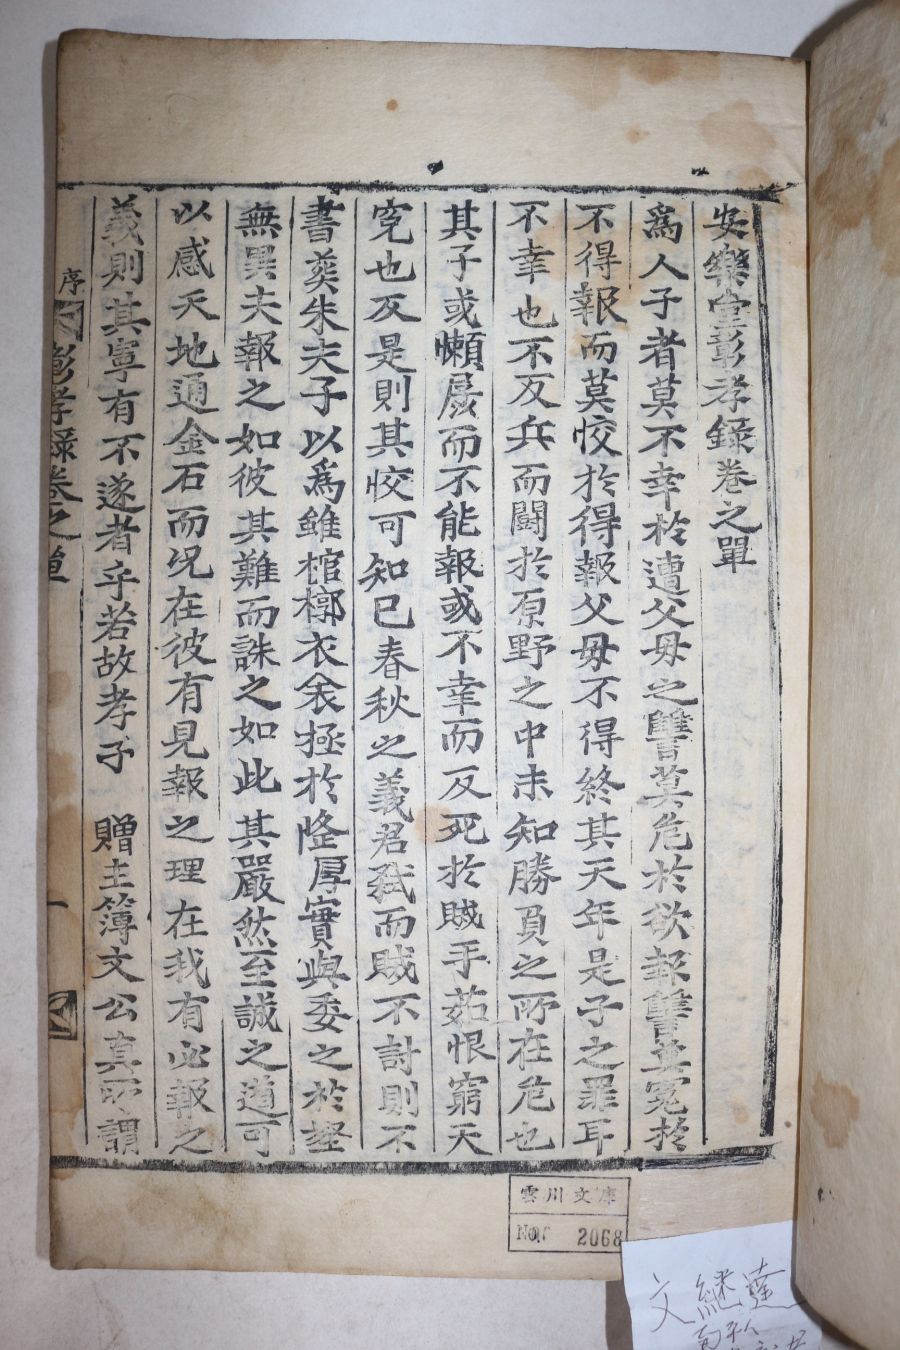 安樂堂彰孝錄卷之單
爲人子者莫不幸於遭父母之讐莫危於欲報讐莫寃於
不得報而莫恔於得報父母不得終其天年是子之罪耳
不幸也不反兵而鬪於原野之中未知勝負之所在危也
其子或懶孱而不能報或不幸而反死於賊手茹恨窮天
寃也反是則其恔可知已春秋之義君弒而賊不討則不
書葬朱夫子以爲雖棺槨衣衾極於隆厚實與委之於壑
無異夫報之如彼其難而誅之如此其嚴然至誠之道可
以感天地通金石而况在彼有見報之理在我有必報之
義則其寧有不遂者乎若故孝子 贈主簿文公真所謂
序 彰孝錄卷之單 一
雲川文庫
No. 2068
文繼達